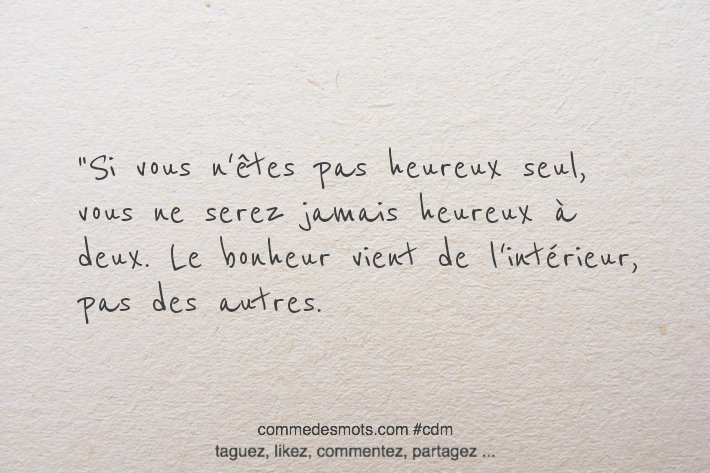 "Si vous n'êtes pas heureux seul,
vous ne serez jamais heureux à
deux. Le bonheur vient de l'intérieur,
pas des autres.
commedesmots.com #cdm
taguez, likez, commentez, partagez ...